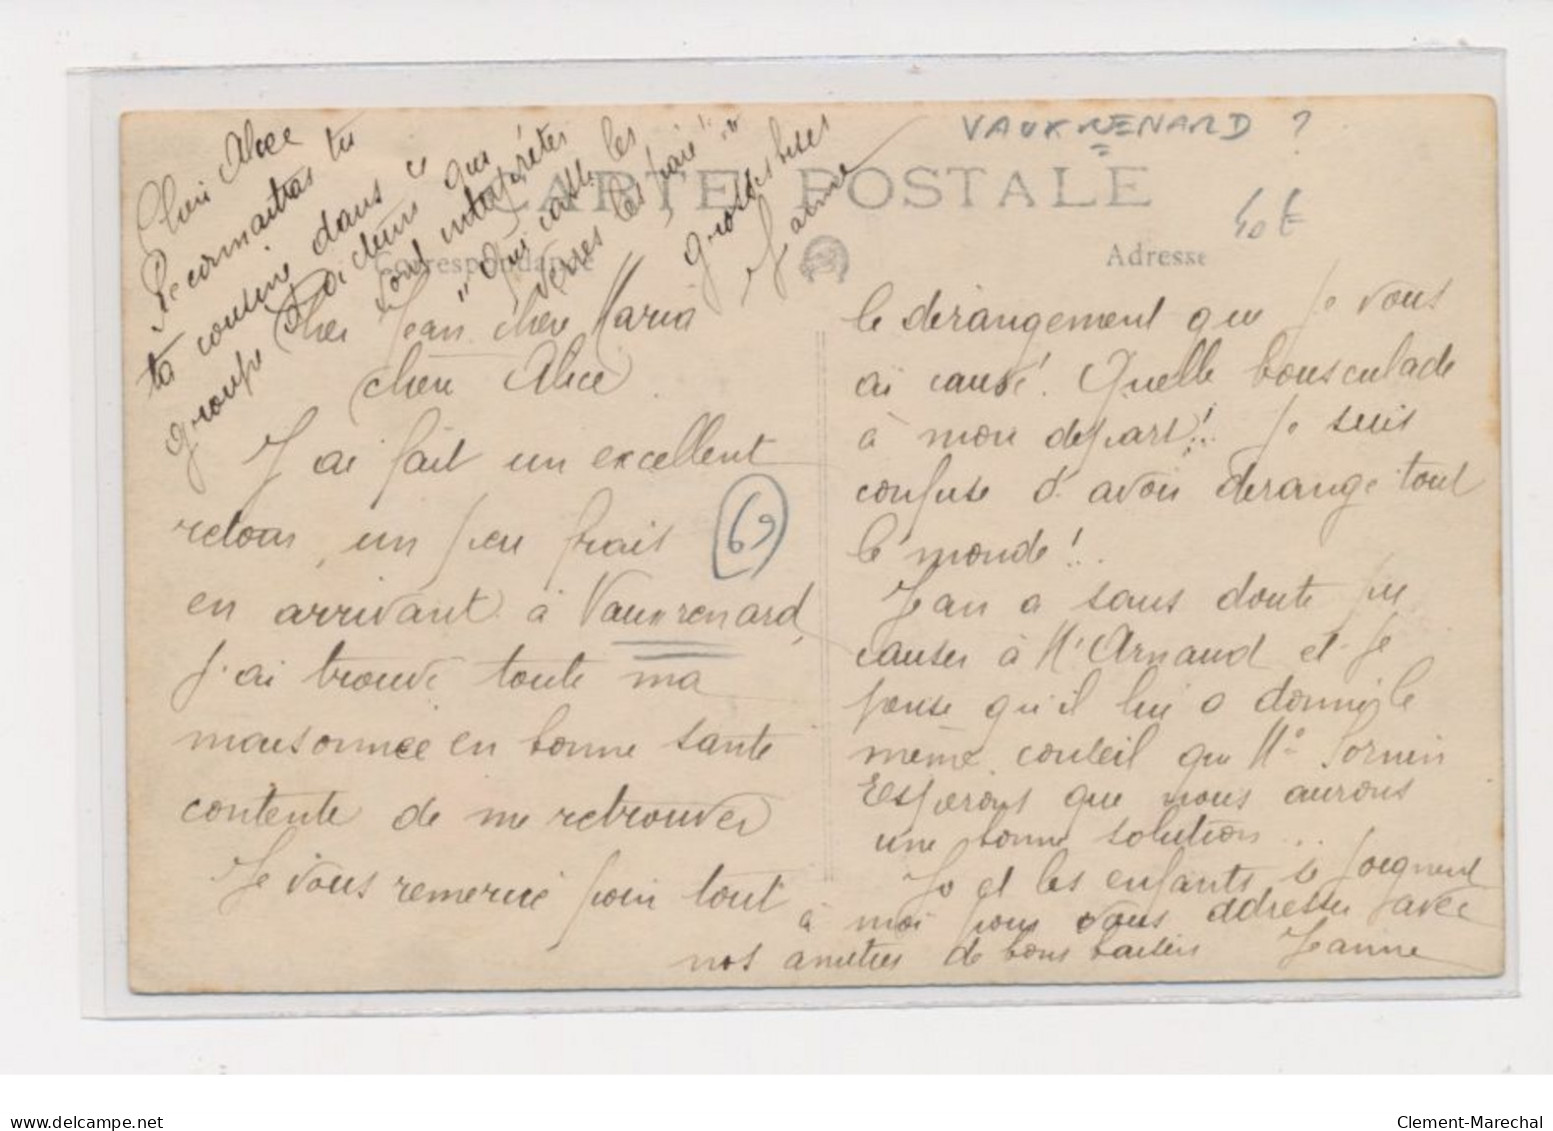 VAUXRENARD ?
40 €
CARTE POSTALE
Correspondance
Adresse
Chère Alice
Reconnaitras tu
ta cousine dans ce
groupe d'acteurs qui
ont interprétés
"Qui casse les
verres les paie"!..
grosses bises
Jeanne
Cher Jean, chère Maria
chère Alice
J'ai fait un excellent
retour, un peu frais
69
en arrivant à Vauxrenard,
j'ai trouvé toute ma
maisonnée en bonne santé
contente de me retrouver
Je vous remercie pour tout
le dérangement que je vous
ai causé! Quelle bousculade
à mon départ!... Je suis
confuse d'avoir dérangé tout
le monde!..
Jean a sans doute pu
causer à Mr Arnaud et je
pense qu'il lui a donné le
même conseil que Me Sornin
Espérons que nous aurons
une bonne solution...
Jo et les enfants se joignent
à moi pour vous adresser avec
nos amitiés de bons baisers Jeanne
www.delcampe.net
Clement-Marechal